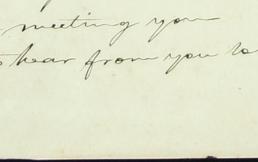 meeting you
hear from you